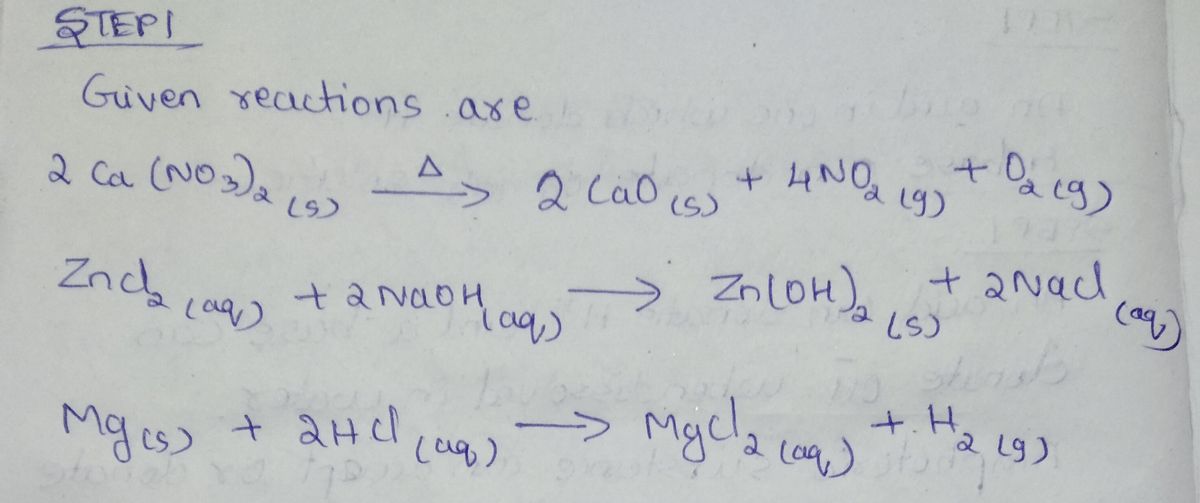 STEP1
Given reactions are
2 Ca (NO₃)₂ (s) —Δ→ 2 CaO (s) + 4NO₂ (g) + O₂ (g)
ZnCl₂ (aq) + 2NaOH (aq) → Zn(OH)₂ (s) + 2NaCl (aq)
Mg (s) + 2HCl (aq) → MgCl₂ (aq) + H₂ (g)